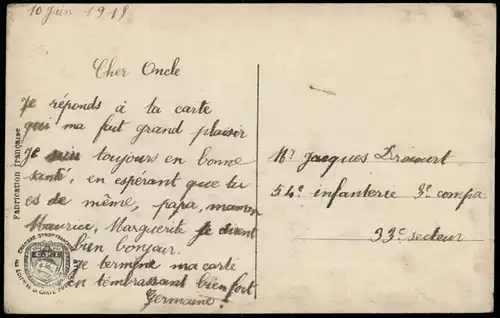 10 Juin 1918
Cher Oncle
Je réponds à ta carte
qui ma fait grand plaisir
Je suis toujours en bonne
santé, en espérant que tu
es de même, papa, maman
Maurice, Marguerite te disent
bien bonjour.
Je termine ma carte
en tembrassant bien fort
Germaine!
Mr Jacques
54e infanterie 3e compa
33e secteur
Fabrication française